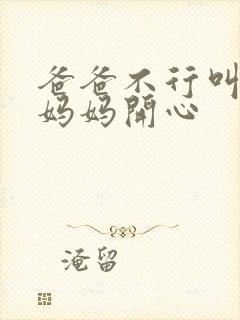 爸爸不行叫
妈妈開心
淹留